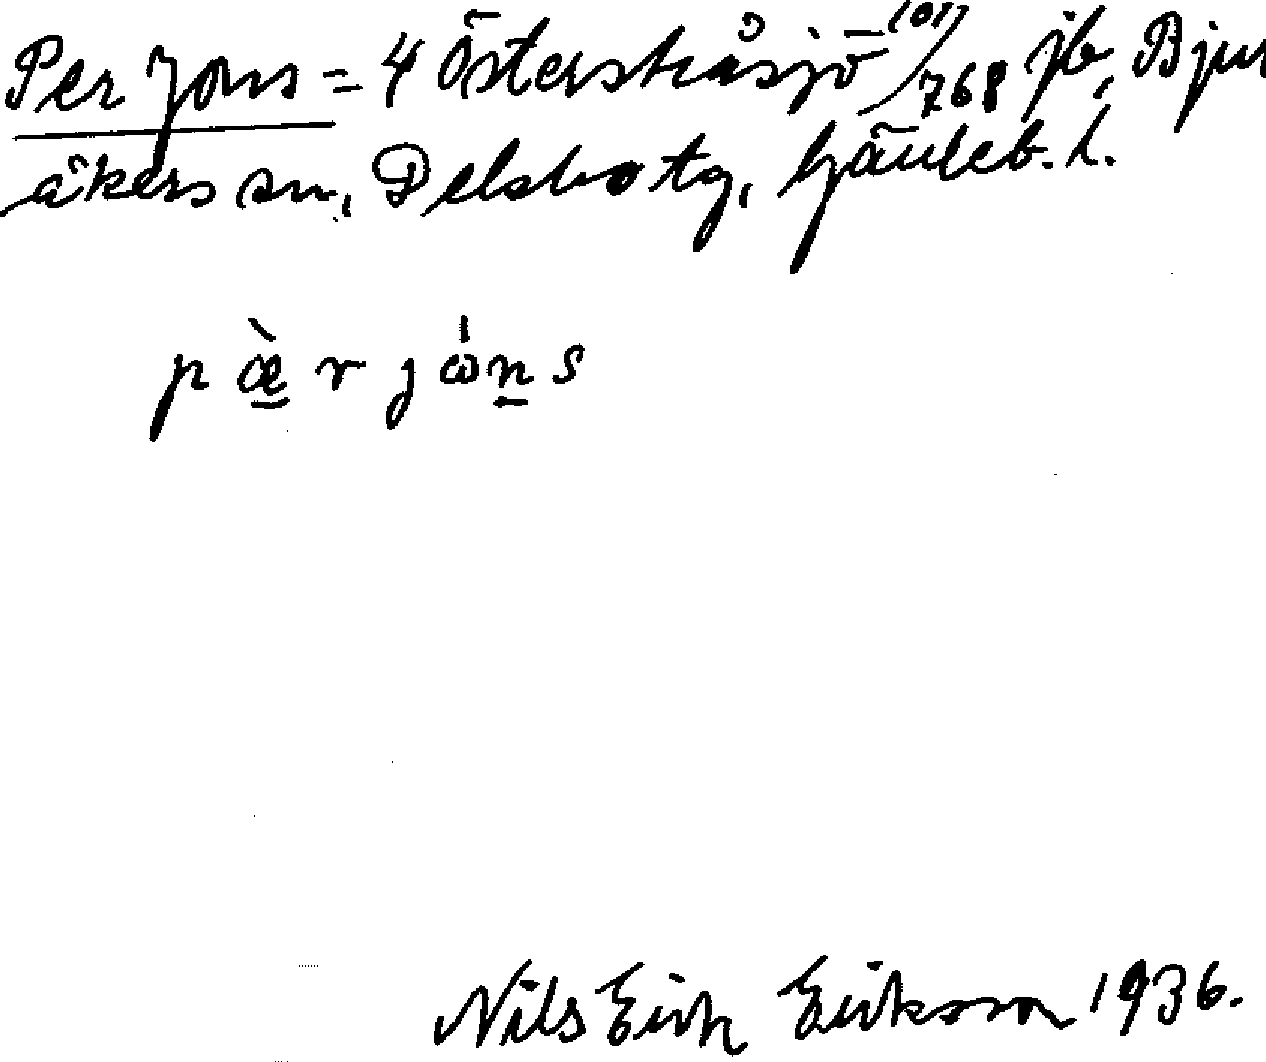 Per Jons = 4 Österskåsjö (01)/768 jb, Bjur
åkers sn, Delsbo tg, Gävleb. l.
pæ̀r jωns
Nils Erik Eriksson 1936.